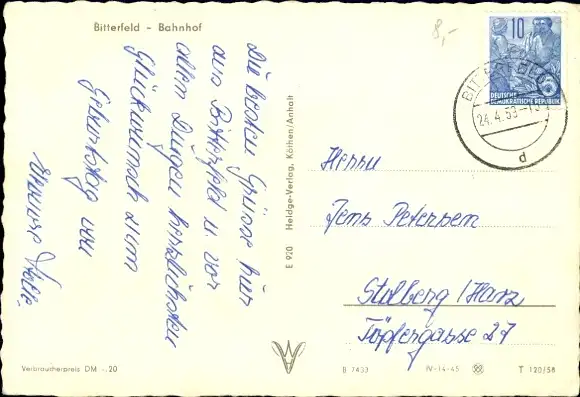 Bitterfeld - Bahnhof
8,-
10
DEUTSCHE
DEMOKRATISCHE REPUBLIK
BITTERFELD
24.4.59-15
d
Die besten Grüsse hier
aus Bitterfeld u. vor
allen Dingen herzlichsten
Glückwunsch zum
Geburtstag von
E 920 Heldge-Verlag, Köthen/Anhalt
Herrn
Jens Petersen
Stolberg/Harz
Töpfergasse 27
Verbraucherpreis DM -.20
B 7433 IV-14-45 T 120/58